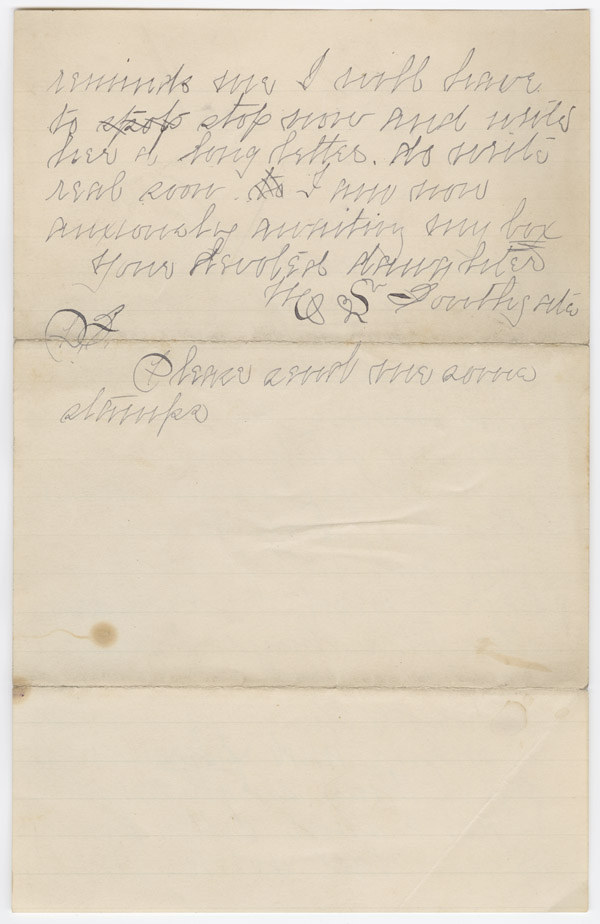 reminds me I will have
to stop stop now and write
her a long letter. do write
real soon. I am now
anxiously awaiting my box
Your devoted daughter
Southgate
P.S.
Please send me some
stamps